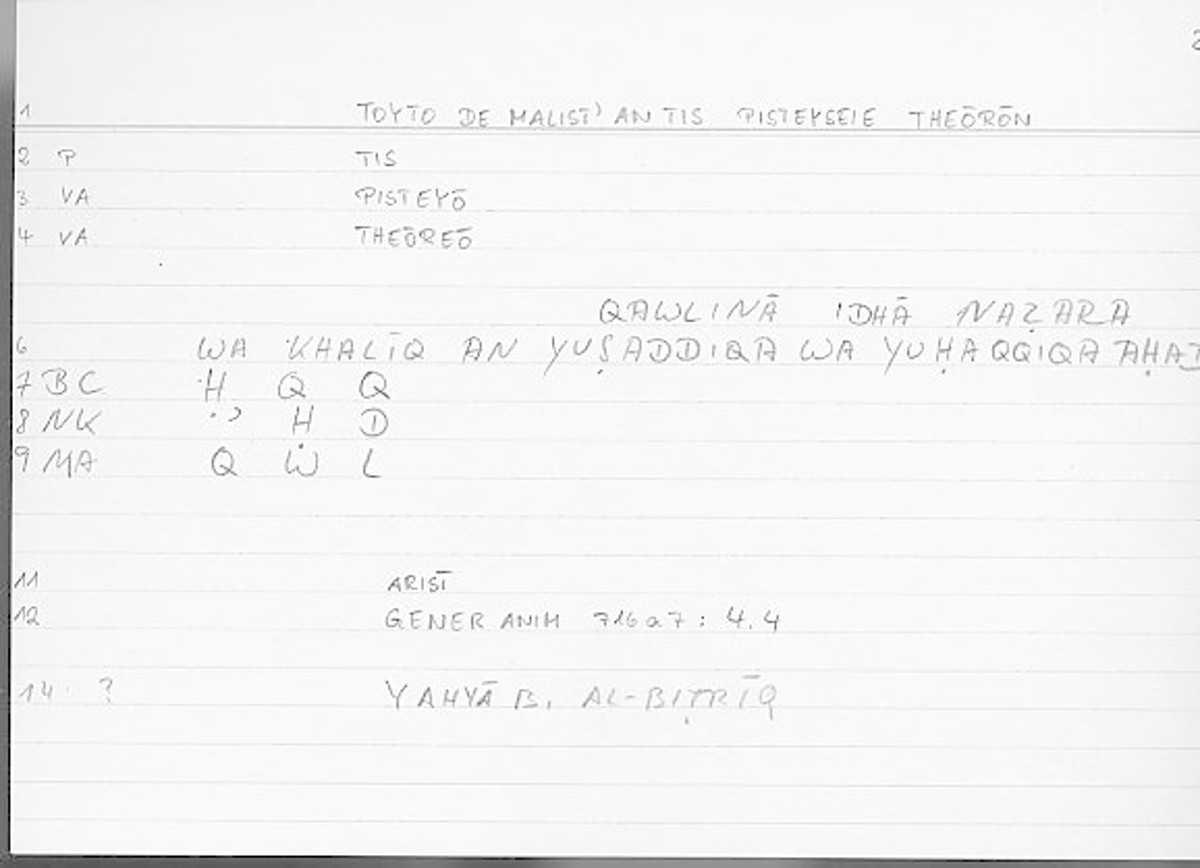 2
1 TOYTO DE MALIST' AN TIS PISTEYSEIE THEŌRŌN
2 P TIS
3 VA PISTEYŌ
4 VA THEŌREŌ
QAWLINĀ IDHĀ NAẒARA
6 WA KHALĪQ AN YUṢADDIQA WA YUḤAQQIQA AḤAD
7 BC Ḥ Q Q
8 NK ' Ḥ D
9 MA Q W L
11 ARIST
12 GENER ANIM 716a7: 4.4
14 ? YAHYĀ B. AL-BIṬRĪQ